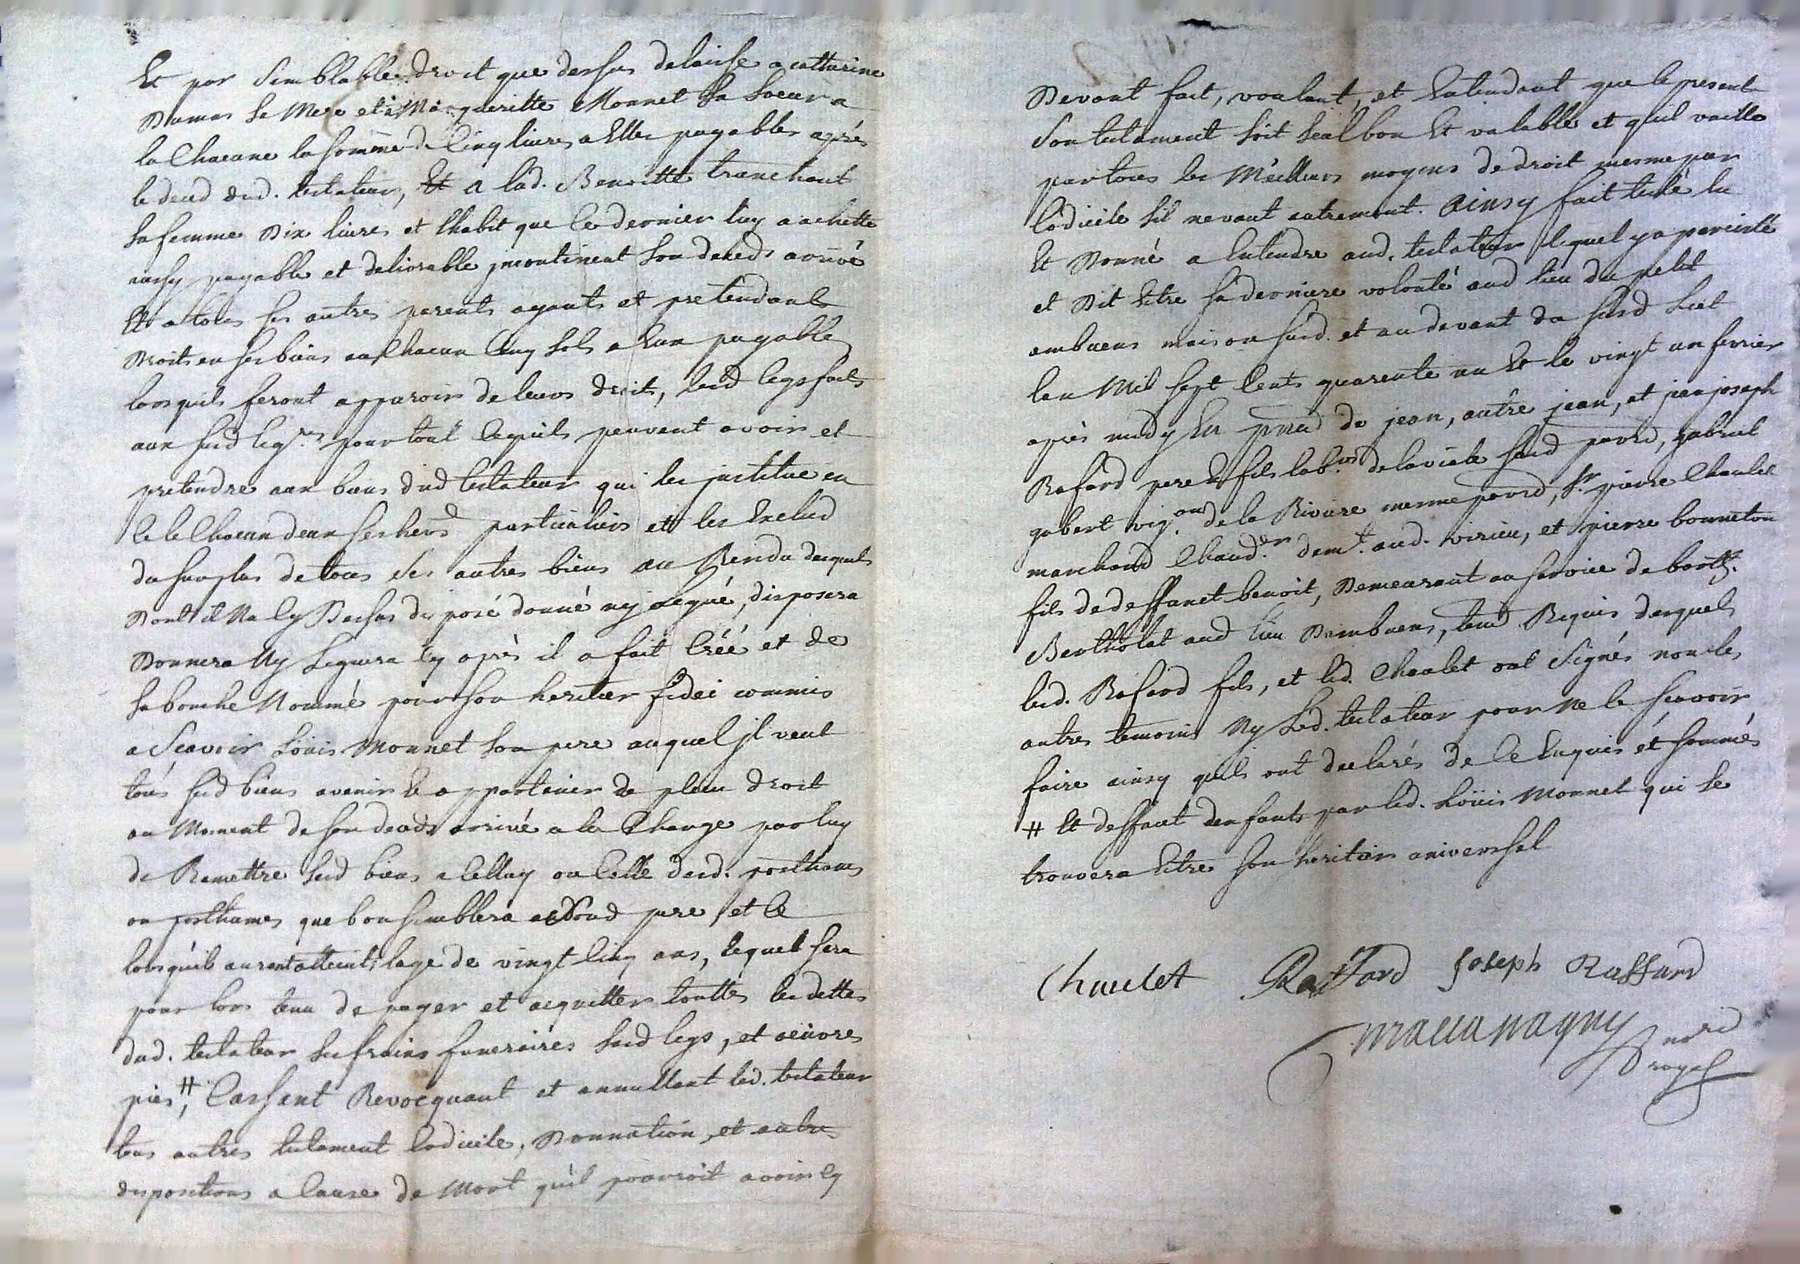 Et par semblable droit que dessus delaisse a catherine
Dumas sa Mere et à Margueritte Monnet sa soeur a
la Chacune la somme de Cinq livres a Elles payables après
le deced dud. testateur, Et a lad. Benoitte tranchant
sa femme Dix livres et l'habit que ce dernier luy a achetté
ausy payable et delivrable jncontinent son deceds arrivé
Et a tous ses autres parents ayants et pretendants
Droits en ses biens au Chacun Cinq sols a Eux payable
lorsquils feront apparoir de leurs droits, lesd legs faits
aux susd leg.res pour tout ce quils peuvent avoir et
pretendre aux biens dud testateur qui les jnstitue en
Ce le Chacun d'eux ses hers particuliers et les Exclud
du surplus de tous ses autres biens au Rendu desquels
Dont il Na Cy Dessus disposé donné ny legué, disposera
Donnera Ny leguera Cy après il a fait Créé et de
sa bouche Nommé pour son heritier fidei commis
a Scavoir Loüis Monnet son pere auquel jl veut
tous susd biens avenir Et appartenir de plein droit
au Moment de son deceds arrivé a la Charge par luy
de Remettre sesd biens a Celluy ou Celle desd. posthumes
ou posthumes que bon semblera aud pere et ce
lorsquils auront atteint lage de vingt Cinq ans, lequel sera
pour lors tenu de payer et acquitter touttes les dettes
dud. testateur ses fraix funeraires sesd legs, et oeuvres
pies #, Cassant Revocquant et annullant led. testateur
tous autres testament Codicile, Donnation, et autres
dispositions a Cause de Mort qu'il pourroit avoir Cy
Devant fait, voulant, et Entendant que le present
son testament soit seul bon Et valable et qu'il vaille
par tous les Meilleurs moyens de droit mesme par
Codicile s'il ne vaut autrement. Ainsy fait testé lu
Et Donné a Entendre aud. testateur lequel y a persisté
et Dit Etre sa derniere volonté aud lieu du petit
ambuens maison susd. et au devant du susd Lict
lan Mil sept Cents quarente un Et le vingt un fevrier
après midy En presd de jean, autre jean, et jean joseph
Rafard pere Et fils lab.rs de la viale susd parrd, gabriel
gobert vig.on de la Riviere mesme parrd, sr. pierre Chaulet
marchand Chaud.er demt. aud. virieu, et pierre bonneton
fils de deffunct benoit, Demeurant au service de barthy.
Bertholat aud lieu Dambuens, temd Requis desquels
led. Rafard fils, et led. Chaulet ont Signés non les
autres temoins Ny Led. testateur pour Ne le scavoir
faire ainsy quils ont declarés de Ce Enquis et sommés
# Et deffaut denfants par led. Loüis Monnet qui se
trouvera Estre son heritier universsel
Chaulet Raffard Joseph Raffard
No.re
royal